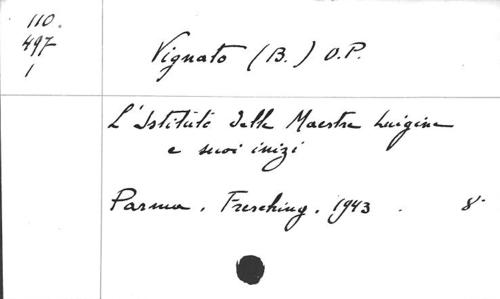 110.
497
1
Vignato (B.) O.P.
L'Istituto delle Maestre Luigine
e suoi inizi
Parma. Fresching. 1943. 8°